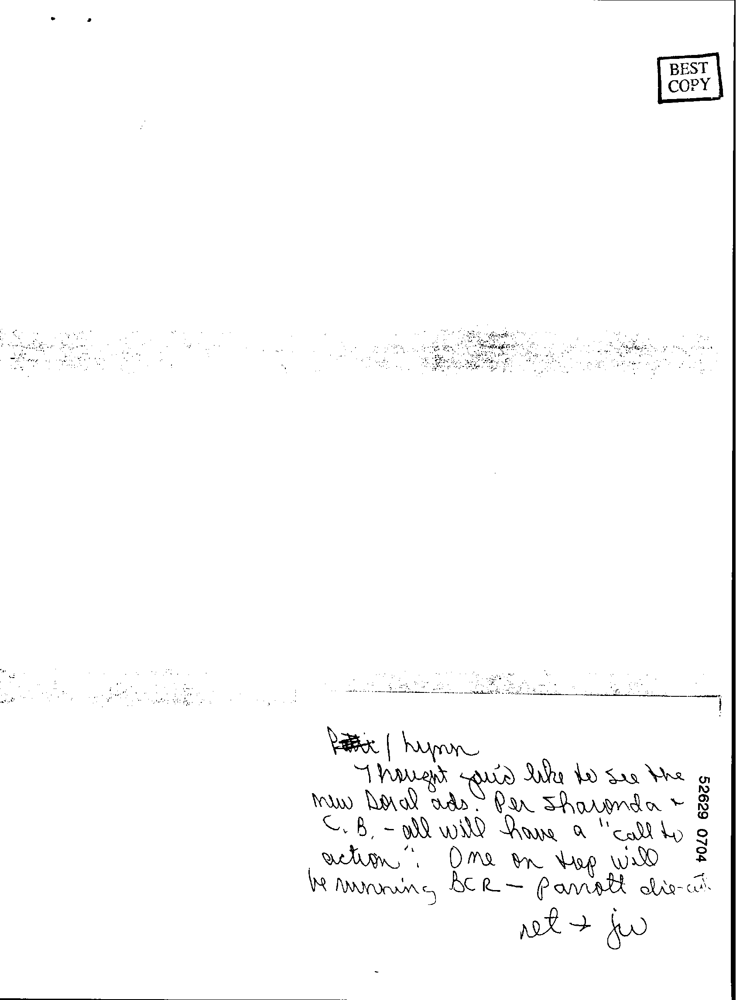 BEST
COPY
/ Lynn
Thought you'd like to see the
new Doral ads. Per Sharonda +
C.B. - all will have a "call to
action". One on top will
be running BCR - parrott die-cut.
ret → jw
52629 0704